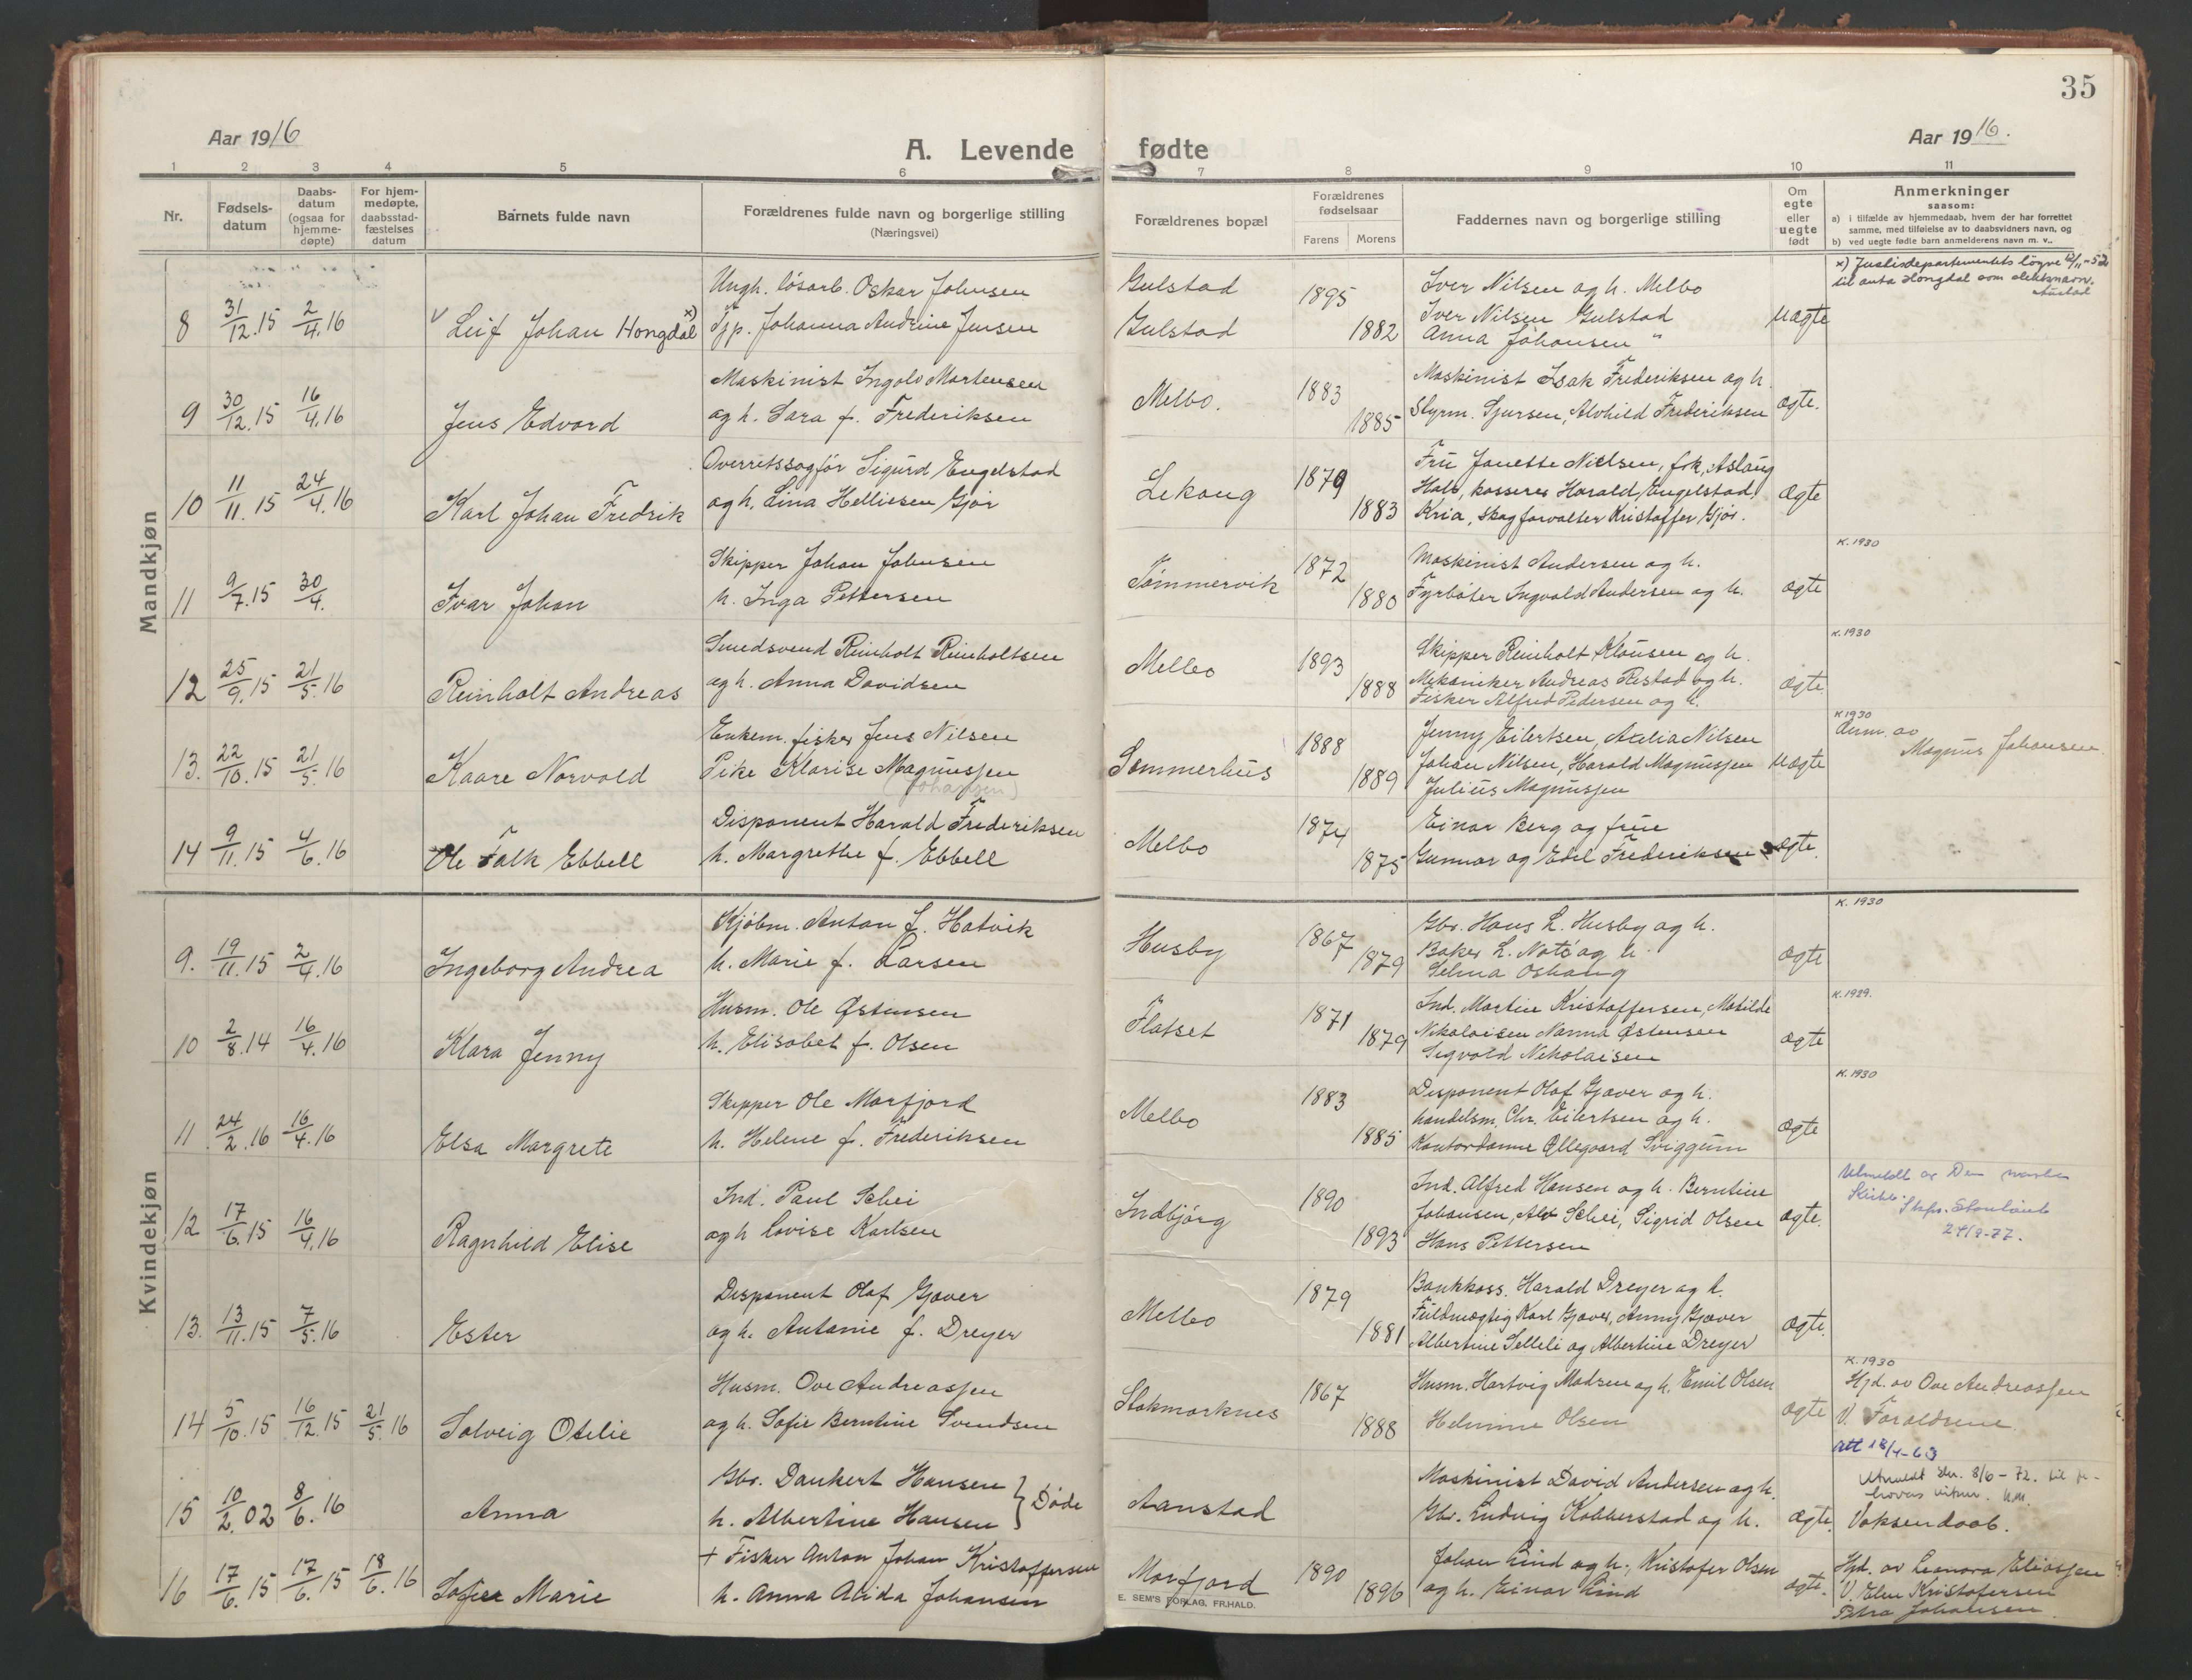 35
Aar 1916
A. Levende fødte
Aar 1916.
1 2 3 4 5 6 7 8 9 10 11
Nr.
Fødsels-datum
Daabs-datum (ogsaa for hjemme-døpte)
For hjem-medøpte, daabsstad-fæstelses datum
Barnets fulde navn
Forældrenes fulde navn og borgerlige stilling
(Næringsvei)
Forældrenes bopæl
Forældrenes fødselsaar
Farens Morens
Faddernes navn og borgerlige stilling
Om egte eller uegte født
Anmerkninger
saasom:
a) i tilfælde av hjemmedaab, hvem der har forrettet
samme, med tilføielse av to daabsvidners navn, og
b) ved uegte fødte barn anmelderens navn m. v..
Mandkjøn
8 31/12.15 2/4.16 Leif Johan Hongdal x)
Ungk. løsarb. Oskar Johnsen
Tjp. Johanna Andrine Jensen
Gulstad
Gulstad
1895 1882
Iver Nilsen og h. Melbo
Iver Nilsen Gulstad
Anna Johansen "
uægte
x) Justisdepartementets løyve /11-52
til anta Hongdal som slektsnavn.
9 30/12.15 16/4.16 Jens Edvard
Maskinist Ingolv Martensen
og h. Sara f. Frederiksen
Melbo.
1883 1885
Maskinist Isak Frederiksen og h.
Styrm. Sjursen, Alvhild Frederiksen
ægte.
10 11/11.15 24/4.16 Karl Johan Fredrik
Overretssagfør Sigurd Engelstad
og h. Lina Helliesen Gjør
Lekang
1879 1883
Fru Janette Nielsen, frk. Aslaug
Hals, kasserer Harald Engelstad,
Kria, skogforvalter Kristoffer Gjør.
ægte
11 9/7.15 30/4. Ivar Johan
Skipper Johan Johnsen
h. Inga Pettersen
Tømmervik
1872 1880
Maskinist Andersen og h.
Fyrbøter Ingvald Andersen og h.
ægte
K. 1930
12 25/9.15 21/5.16 Reinholt Andreas
Smedsvend Reinholt Reinholtsen
og h. Anna Davidsen
Melbo
1893 1888
Skipper Reinholt Klausen og h.
Mekaniker Andreas Restad og h.
Fisker Alfred Pedersen og h.
ægte
K. 1930
13. 22/10.15 21/5.16 Kaare Norvald
Enkem. fisker Jens Nilsen
Pike Klarise Magnussen
(Johansen)
Sommerhus
1888 1889
Jenny Eilertsen, Aalia Nilsen
Johan Nilsen, Harald Magnussen
Julius Magnussen
uægte
K 1930
Anm. av
Magnus Johansen.
14 9/11.15 4/6.16 Ole Falk Ebbell
Disponent Harald Frederiksen
h. Margrethe f. Ebbell
Melbo
1874 1875
Einar Berg og frue
Gunnar og Edel Frederiksen
ægte.
Kvindekjøn
9. 19/11.15 2/4.16 Ingeborg Andrea
Kjøbm. Anton J. Hatvik
h. Marie f. Larsen
Husby
1867 1879
Gbr. Hans L. Husby og h.
Baker L. Notø og h.
Selma Oshaug
ægte
K. 1930
10 2/8.14 16/4.16 Klara Jenny
Husm. Ole Østensen
h. Elisabet f. Olsen
Flatset
1871 1879
Ind. Martin Kristoffersen, Matilde
Nikolaisen Nanna Østensen
Sigvald Nikolaisen
ægte
K. 1929.
11 24/2.16 16/4.16 Elsa Margrete
Skipper Ole Marfjord
h. Helene f. Frederiksen
Melbo
1883 1885
Disponent Olaf Gjæver og h.
handelsm. Chr. Eilertsen og h.
Kontordame Øllegaard Sviggum
ægte
K. 1930
12 17/6.15 16/4.16 Ragnhild Elise
Ind. Paul Schei
og h Lovise Karlsen
Indbjørg
1890 1893
Ind. Alfred Hansen og h. Berntine
Johansen, Alv Schei, Sigrid Olsen
Hans Pettersen
ægte.
Utmeldt av Den norske
Kirke.
13. 13/11.15 7/5.16 Ester
Disponent Olaf Gjæver
og h. Antonie f. Dreyer
Melbo
1879 1881
Bankkass. Harald Dreyer og h.
Fuldmægtig Karl Gjæver, Anny Gjæver
Albertine Selleli og Albertine Dreyer
ægte.
14 5/10.15 16/12.15 21/5.16 Solveig Otelie
Husm. Ove Andreassen
og h. Sofie Berntine Svendsen
Stokmarknes
1867 1888
Husm. Hartvig Madsen og h. Emil Olsen
Helmine Olsen
ægte
K. 1930
Hjd. av Ove Andreassen
V. Forældrene
rett 18/4-63
15 10/2.02 8/6.16 Anna
Gbr. Dankert Hansen
h. Albertine Hansen } Døde
Aanstad
Maskinist David Andersen og h.
Gbr. Ludvig Kobberstad og h.
ægte.
Utmeldt 8/6-72.
Voksendaab.
16 17/6.15 17/6.15 18/6.16 Sofie Marie
+ Fisker Anton Johan Kristoffersen
h. Anna Alida Johansen
Morfjord
1890 1896
Johan Lind og h., Kristofer Olsen
og h. Einar Lind
ægte.
Hjd. av Leonora Eliassen
V. Elen Kristofersen
Petra Johansen.
E. SEM'S FORLAG. FR.HALD.